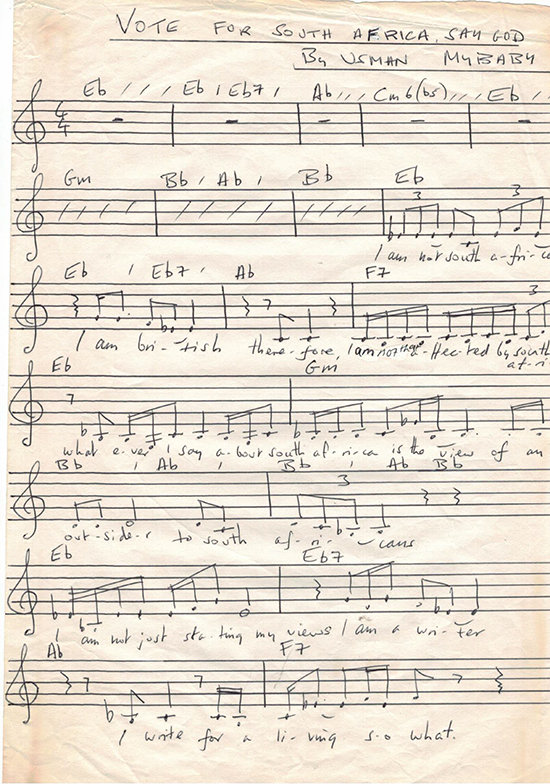 VOTE FOR SOUTH AFRICA, SAY GOD
By USMAN MYBABY
Eb / / / Eb / Eb7 / Ab / / / Cm6(b5) / / / Eb /
4
4
Gm Bb / Ab / Bb Eb
3 3
I am not south a-fri-ca
Eb / Eb7 / Ab F7
3
I am bri-tish there-fore, I am not a-ffec-ted by south
af-ri-
Eb Gm
what e-ver I say a-bout south af-ri-ca is the view of an
Bb / Ab / Bb / Ab Bb
3
out-side-r to south af-ri-cans
Eb Eb7
I am not just sta-ting my views I am a wri-ter
Ab F7
I write for a li-ving s-o what.